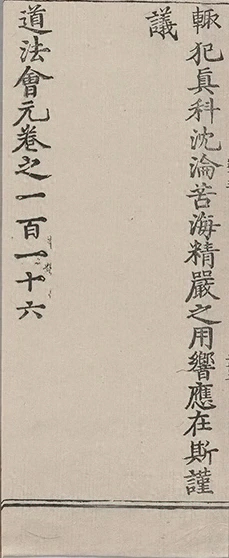 輙犯真科沈淪苦海精嚴之用響應在斯謹
議
道法會元卷之一百一十六